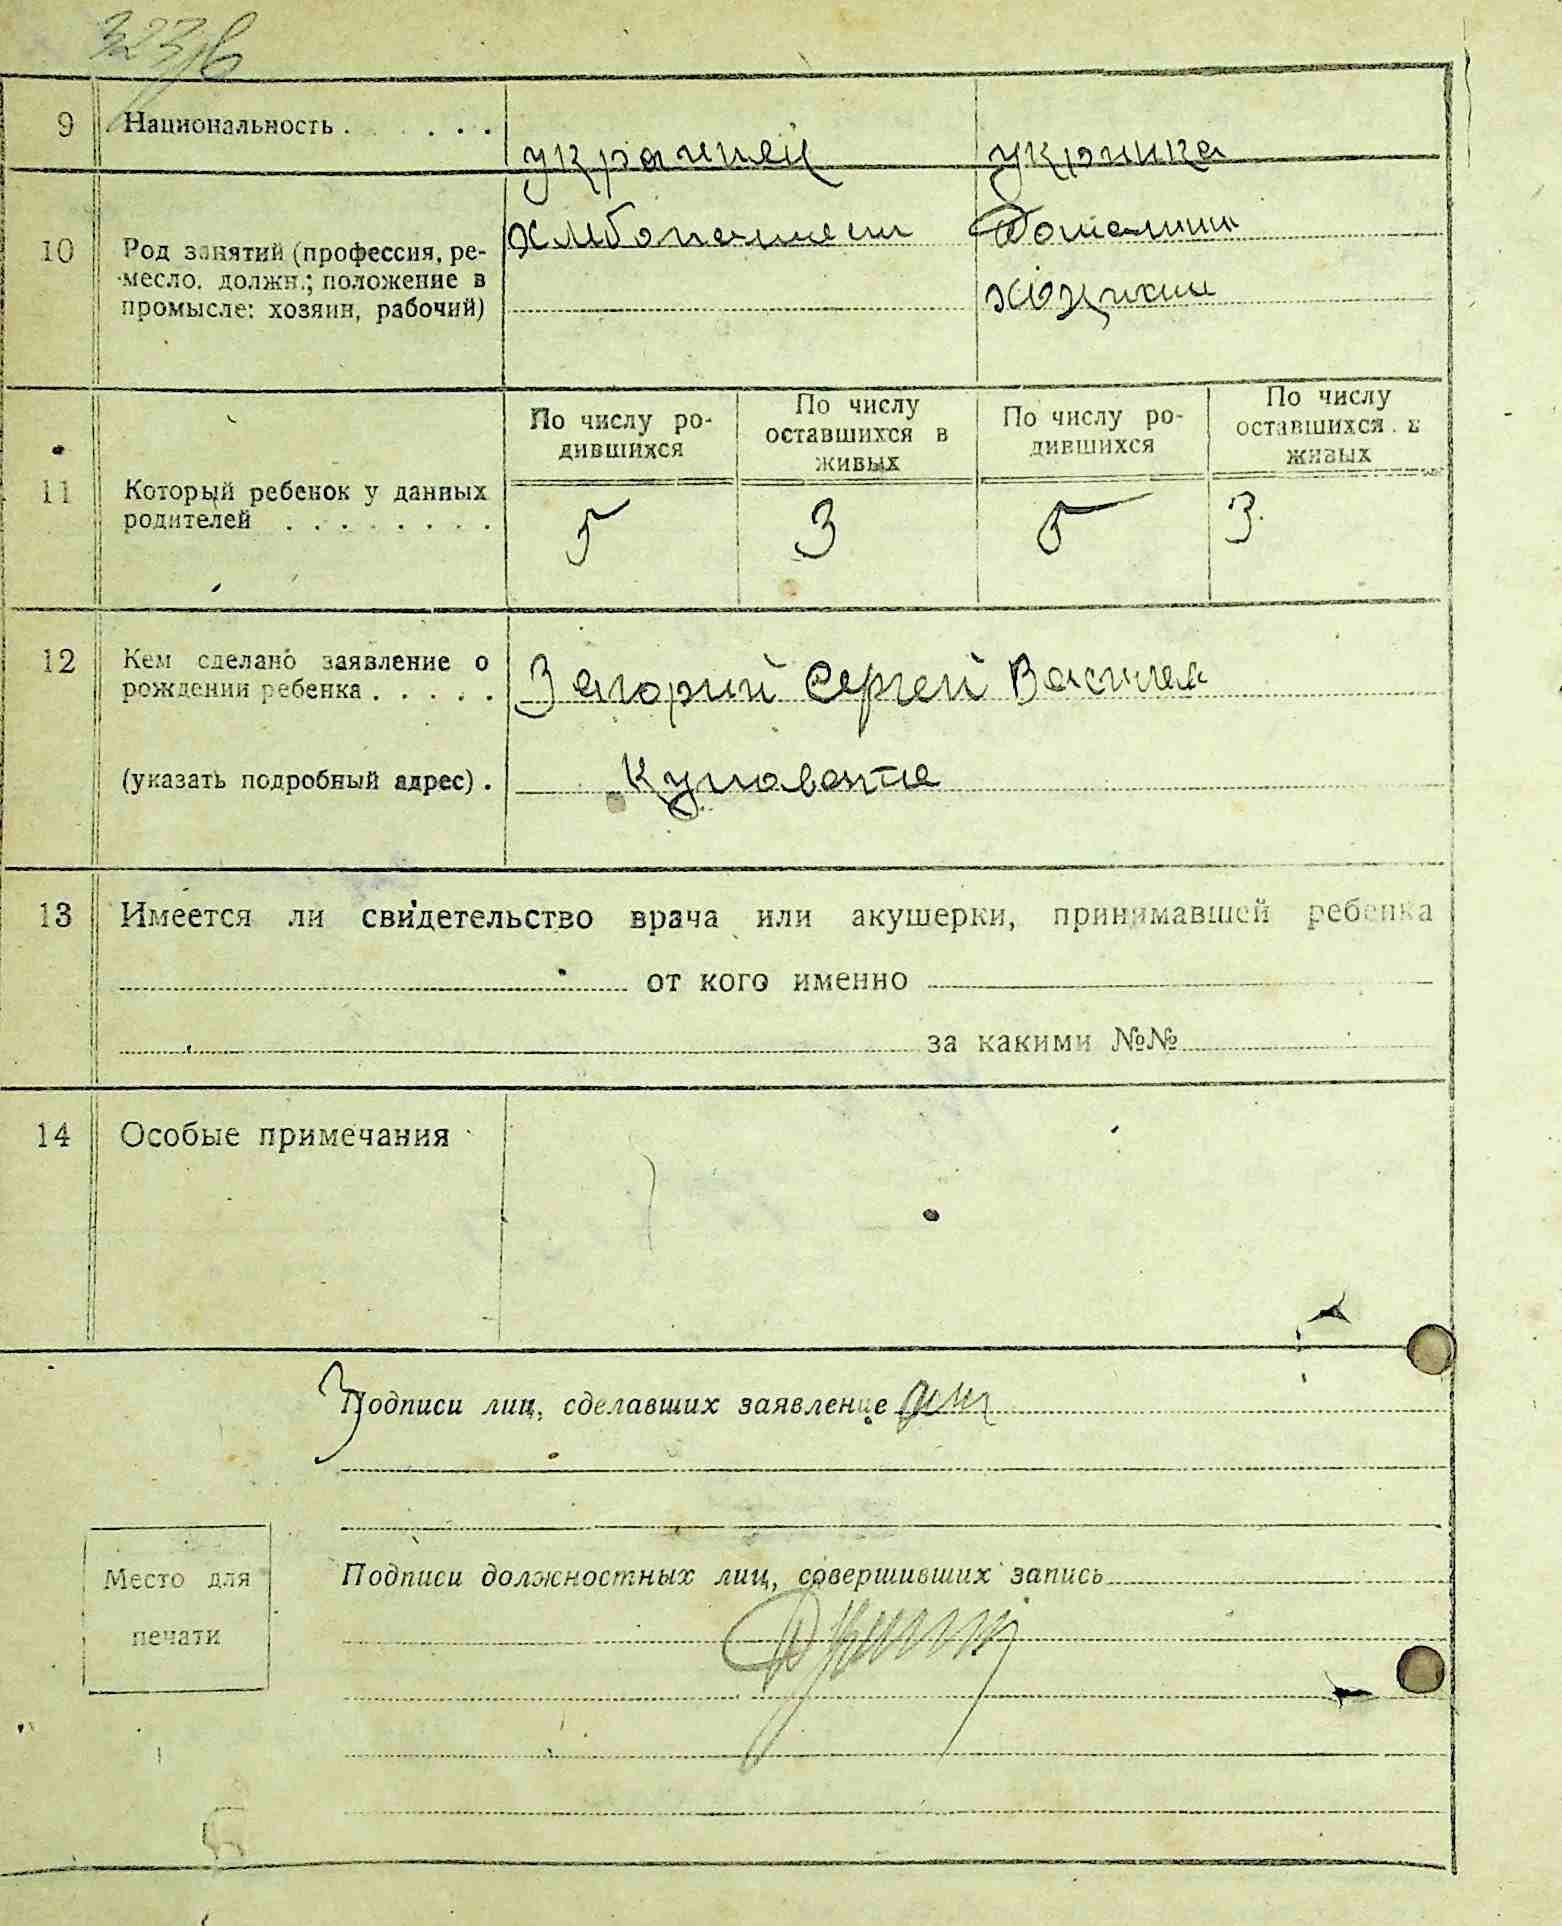 323/в
9 Национальность . . . . . .
украинец укринка
10 Род занятий (профессия, ре-
месло, должн.; положение в
промысле: хозяин, рабочий)
По числу ро-
дившихся
По числу
оставшихся в
живых
По числу ро-
дившихся
По числу
оставшихся в
живых
11 Который ребенок у данных
родителей . . . . . . . .
5 3 5 3
12 Кем сделано заявление о
рождении ребенка . . . . .
Загорий Сергей
(указать подробный адрес) .
13 Имеется ли свидетельство врача или акушерки, принимавшей ребенка
от кого именно
за какими №№
14 Особые примечания
Подписи лиц, сделавших заявление
Место для
печати
Подписи должностных лиц, совершивших запись